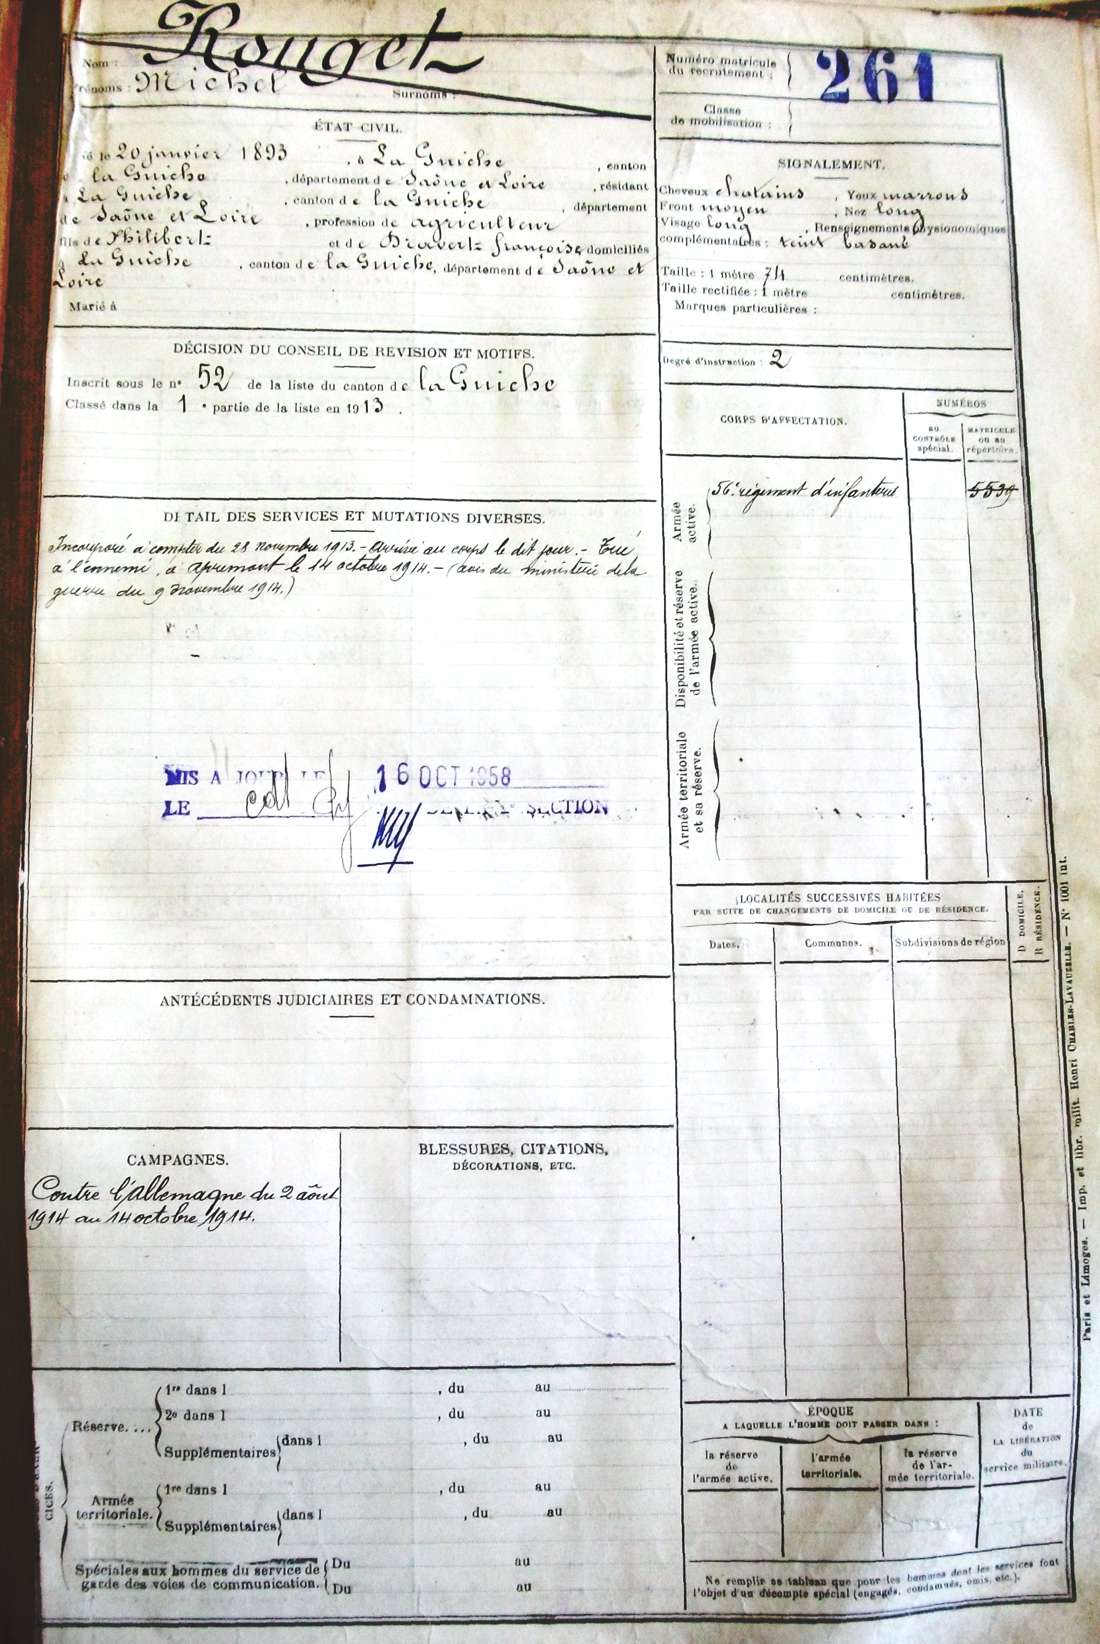 Nom : Rouget
Prénoms : Michel
Surnoms :
Numéro matricule
du recrutement :
261
Classe
de mobilisation :
ÉTAT CIVIL.
né le 20 janvier 1893, à La Guiche, canton
de la Guiche, département de Saône et Loire, résidant
à La Guiche, canton de la Guiche, département
de Saône et Loire, profession de agriculteur
fils de Philibert et de Dravert françoise, domiciliés
à La Guiche, canton de la Guiche, département de Saône et
Loire
Marié à
SIGNALEMENT.
Cheveux chatains, Yeux marrons
Front moyen, Nez long
Visage long, Renseignements physionomiques
complémentaires : teint basané
Taille : 1 mètre 74 centimètres.
Taille rectifiée : 1 mètre centimètres.
Marques particulières :
Degré d'instruction : 2
DÉCISION DU CONSEIL DE REVISION ET MOTIFS.
Inscrit sous le n° 52 de la liste du canton de la Guiche
Classé dans la 1e partie de la liste en 1913.
DÉTAIL DES SERVICES ET MUTATIONS DIVERSES.
Incorporé à compter du 28 novembre 1913.- Arrivé au corps le dit jour.- Tué
à l'ennemi, à Apremont le 14 octobre 1914.- (avis du ministère de la
guerre du 9 novembre 1914.)
MIS A JOUR LE 16 OCT 1958
LE
SECTION
CORPS D'AFFECTATION.
NUMÉROS
AU
CONTRÔLE
spécial.
MATRICULE
OU AU
répertoire.
Armée
active.
56e régiment d'infanterie
5539
Disponibilité et réserve
de l'armée active.
Armée territoriale
et sa réserve.
LOCALITÉS SUCCESSIVES HABITÉES
PAR SUITE DE CHANGEMENTS DE DOMICILE OU DE RÉSIDENCE.
Dates.
Communes.
Subdivisions de région
D DOMICILE,
R RÉSIDENCE.
ANTÉCÉDENTS JUDICIAIRES ET CONDAMNATIONS.
CAMPAGNES.
Contre l'Allemagne du 2 août
1914 au 14 octobre 1914.
BLESSURES, CITATIONS,
DÉCORATIONS, ETC.
Réserve....
1re dans l , du au
2e dans l , du au
Supplémentaires dans l , du au
Armée
territoriale.
1re dans l , du au
Supplémentaires dans l , du au
Spéciales aux hommes du service de
garde des voies de communication.
Du au
Du au
CICES.
ÉPOQUE
A LAQUELLE L'HOMME DOIT PASSER DANS :
la réserve
de
l'armée active.
l'armée
territoriale.
la réserve
de l'ar-
mée territoriale.
DATE
de
LA LIBÉRATION
du
service militaire.
Ne remplir ce tableau que pour les hommes dont les services font
l'objet d'un décompte spécial (engagés, condamnés, omis, etc.).
Paris et Limoges. — Imp. et libr. milit. Henri CHARLES-LAVAUZELLE. — N° 1001 int.